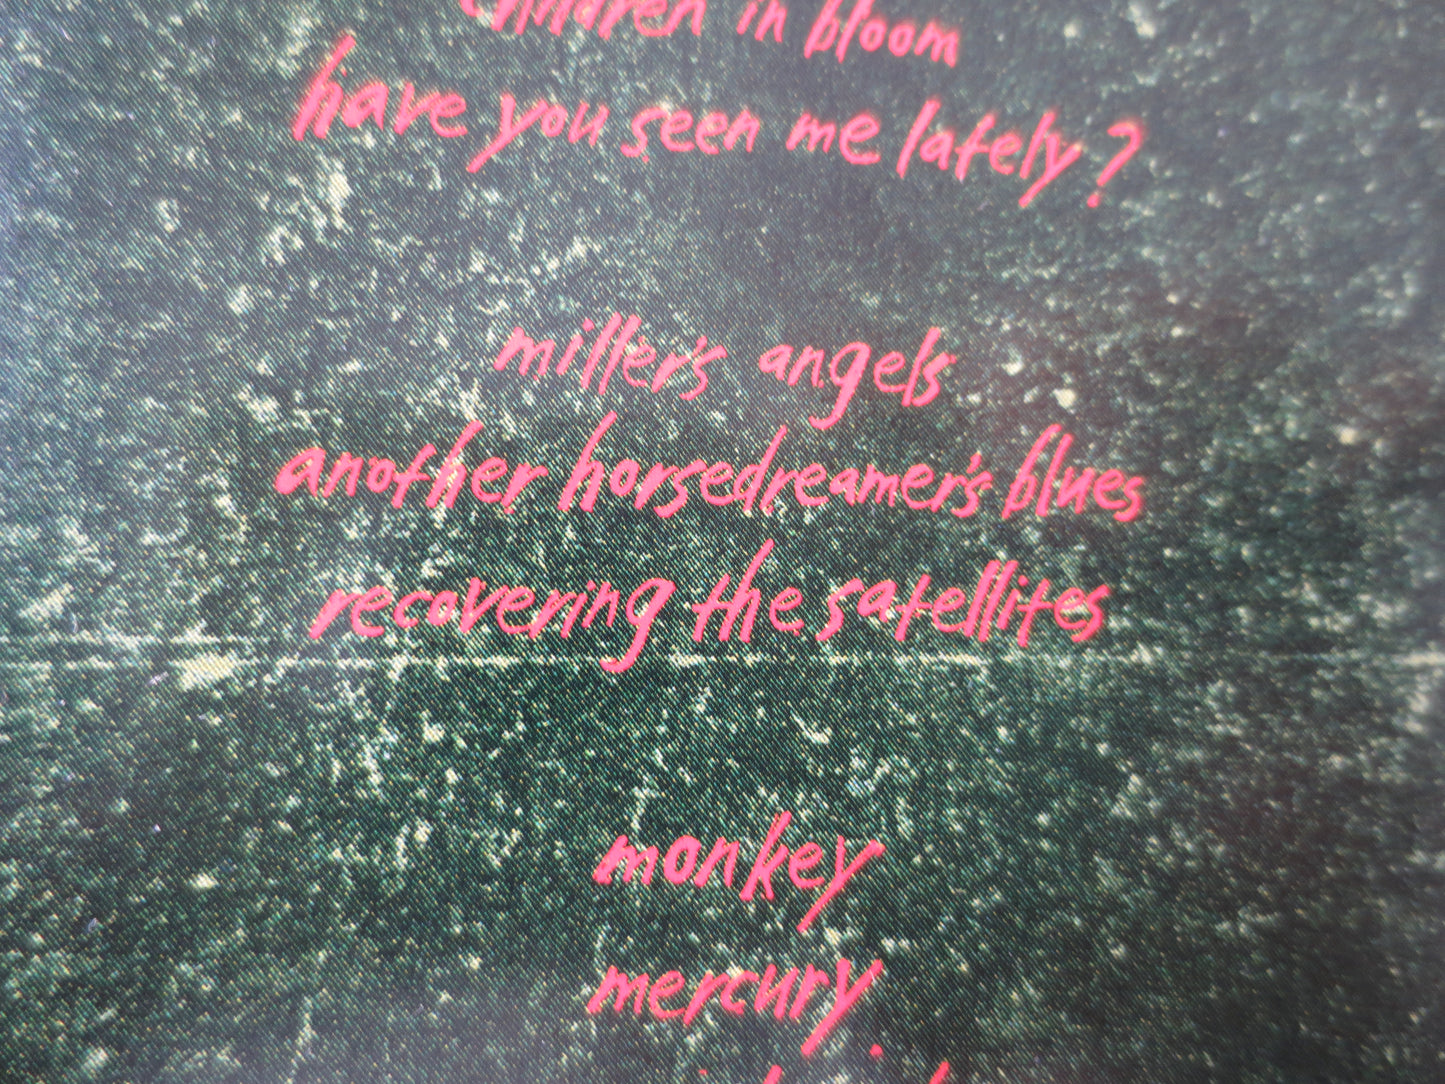 children in bloom
have you seen me lately?
miller's angels
another horsedreamer's blues
recovering the satellites
monkey
mercury